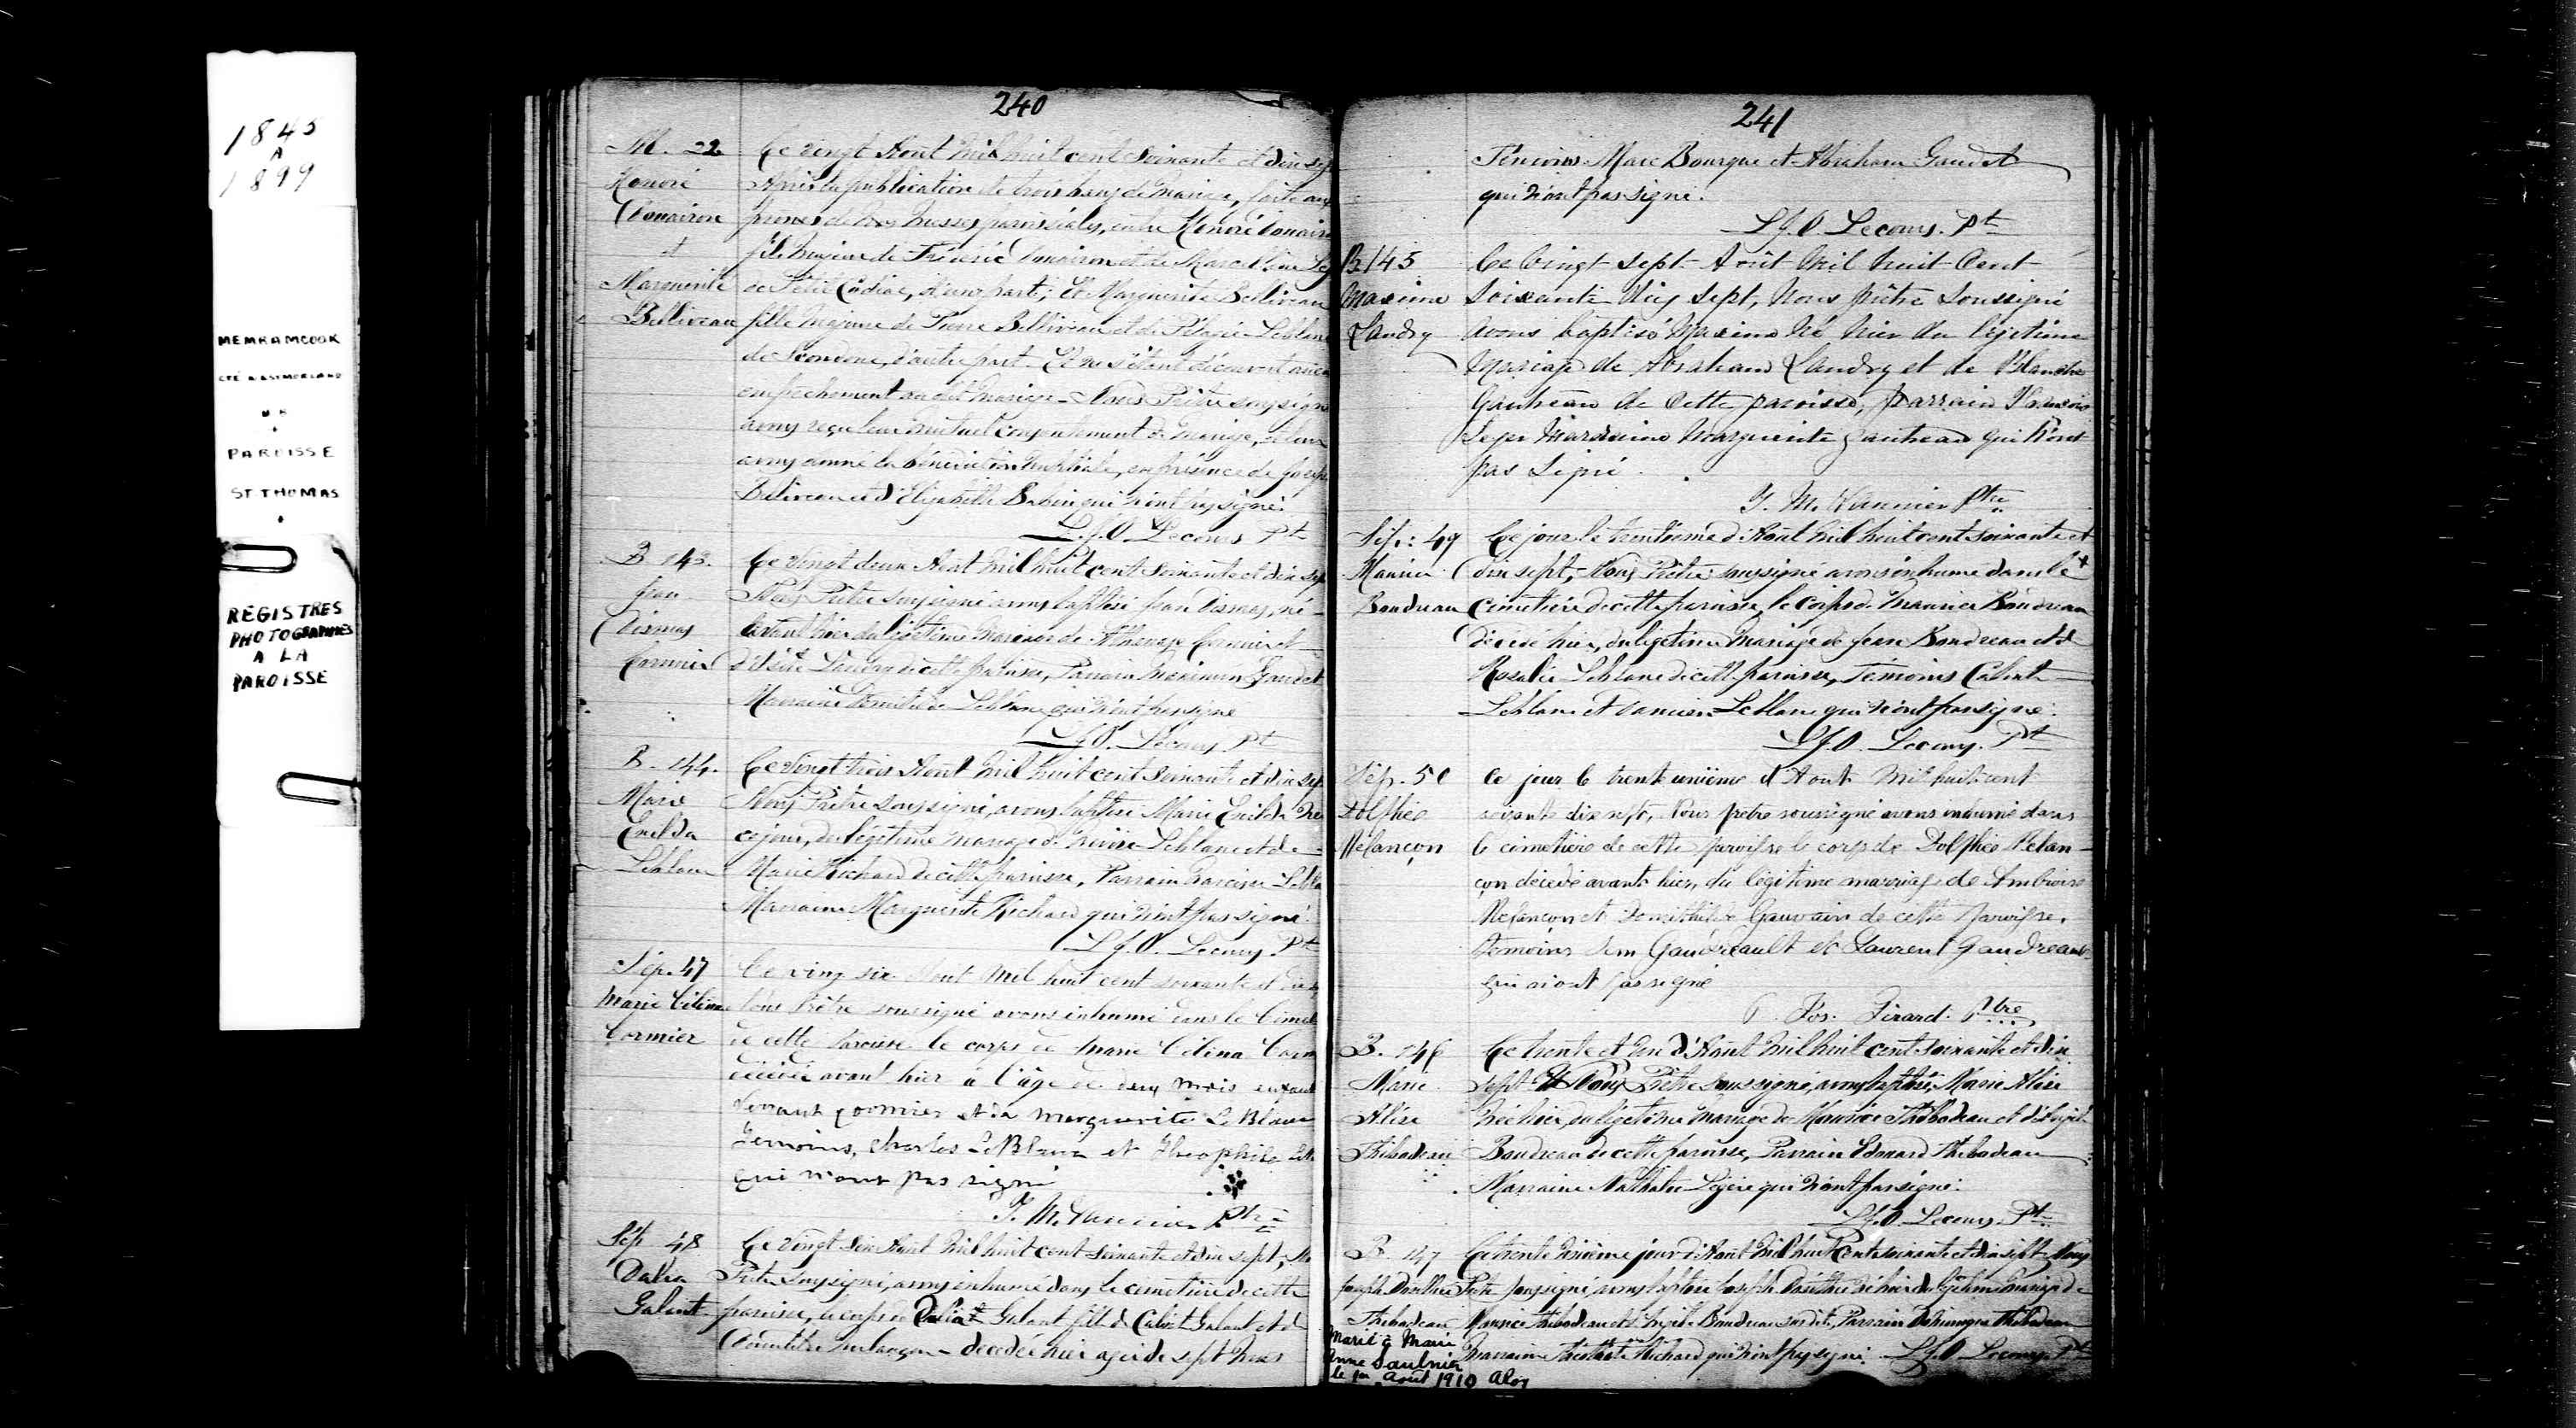 1845
A
1899
MEMRAMCOOK
CTÉ WESTMORLAND
N B
PAROISSE
ST THOMAS
REGISTRES
PHOTOGRAPHIÉS
A LA
PAROISSE
240
M. 22
Honoré
Douairon
et
Marguerite
Belliveau
Ce vingt Aout Mil huit cent Soixante et dix sep
Après la publication de trois bans de Mariage, faite aux
prones de nos Messes paroissiales, entre Honoré Douairon
fils Majeur de Frédéric Douairon et de Marcelline
de Petit Codiac, d'une part; Et Marguerite Belliveau
fille Majeure de Pierre Belliveau et de Pélagie Leblanc
de Scoudouc, d'autre part. Et ne s'étant découvert aucun
empêchement au dit Mariage. Nous Prêtre soussigné
avons reçu leur Mutuel consentement de Mariage, et leur
avons donné la bénédiction Nuptiale, en présence de Joseph
Beliveau et d'Elizabeth Babin qui n'ont pas signé.
L.J.O. Lecours Pt
B. 143.
Jean
Dismas
Cormier
Ce vingt deux Aout Mil huit cent Soixante et dix sep
Nous Prêtre soussigné avons baptisé Jean Dismas, né
avant hier du légitime Mariage de Cormier et
Landry de cette paroisse, Parrain Gaudet
Marraine Domitilde Leblanc qui n'ont pas signé
L.J.O. Lecours Pt
B. 144.
Marie
Enilda
Leblanc
Ce vingt trois Aout Mil huit cent Soixante et dix sep
Nous Prêtre soussigné, avons baptisé Marie Enilda Née
ce jour, du légitime Mariage de Leblanc et de
Marie Richard de cette paroisse, Parrain Narcisse Lebla
Marraine Marguerite Richard qui n'ont pas signé.
L.J.O. Lecours. Pt
Sép. 47
Marie Célina
Cormier
Ce ving six Aout Mil huit cent soixante et dix
Nous Prêtre soussigné avons inhumé dans le Cimet
de cette Paroisse le corps de Marie Célina Corm
décédée avant hier à l'âge de deux mois enfant
Cormier et de Marguerite LeBlanc
Temoins, Charles LeBlanc et Théophile
qui n'ont pas signé
Ptre
Sép 48
Galant
Ce vingt six Aout Mil huit cent soixante et dix sept, No
Prêtre soussigné, avons inhumé dans le cimetière de cette
paroisse, le corps de Galant fille de Calixte Galant et de
Domitilde Melançon décédée hier agée de sept Mois
241
Témoins Marc Bourque et Abraham Gaudet
qui n'ont pas signé.
L.J.O. Lecours. Pt
B 145
Maxime
Landry
Ce Vingt sept Août Mil huit Cent
Soixante Dix sept, Nous prêtre soussigné
avons baptisé Maxime Né hier du légitime
Mariage de Abraham Landry et de Blanche
Gautreau de Cette paroisse, Parrain François
Leger Marraine Marguerite Gautreau qui n'ont
pas signé.
Ptre
Sép.: 49
Maurice
Boudreau
Ce jour le trentième d'Aout Mil huit cent soixante et
dix sept, Nous Prêtre soussigné avons inhumé dans le
cimetière de cette paroisse, le corps de Maurice Boudreau
décédé hier, du légitime Mariage de Jean Boudreau et de
Rosalie Leblanc de cette paroisse, Témoins Calixte
Leblanc et Damien Leblanc qui n'ont pas signé.
L.J.O. Lecours. Pt
Sép. 50
Dolphée
Melançon
Ce jour le trente unième d'Aout Mil huit cent
soixante dix sept, Nous prêtre soussigné avons inhumé dans
le cimetière de cette paroisse le corps de Dolphée Melan-
çon décédé avant hier, du légitime mariage de Ambroise
Melançon et Domithilde Gauvain de cette paroisse.
Temoins Gaudreault et Laurent Gaudreault
qui n'ont pas signé
Jos. Girard. Ptre
B. 146
Marie
Alise
Thibodeau
Ce trente et un d'Aout Mil huit cent soixante et dix
sept Nous Prêtre soussigné, avons baptisé, Marie Alise
Née hier, du légitime Mariage de Maurice Thibodeau et d'
Boudreau de cette paroisse, Parrain Edouard Thibodeau
Marraine Nathalie Légère qui n'ont pas signé.
L.J.O. Lecours. Pt
B. 147
Joseph Dosithée
Thibodeau
Marié à Marie
Anne Saulnier
le Août 1910
Ce trente unième jour d'Aout Mil huit Cent soixante et dix sept Nous
Prêtre soussigné, avons baptisé Joseph Dosithée né hier du légitime Mariage de
Maurice Thibodeau et d' Boudreau susdits, Parrain Thibodeau
Marraine Richard qui n'ont pas signé L.J.O Lecours. Pt